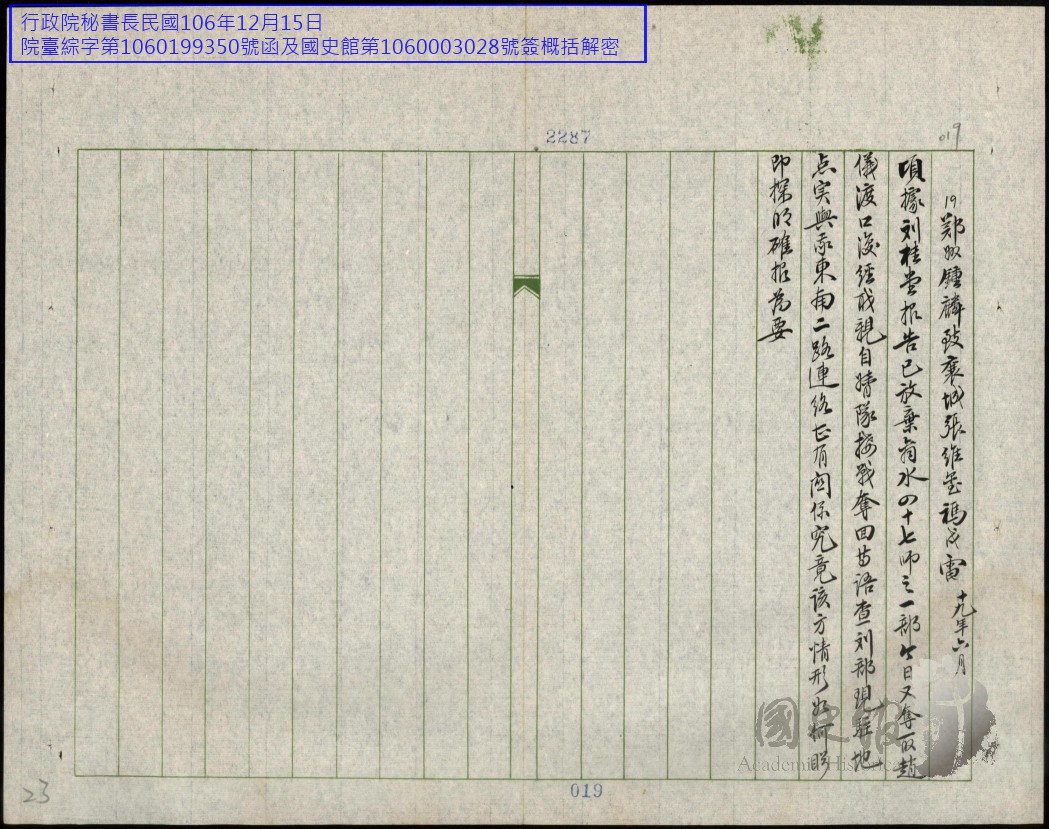 行政院秘書長民國106年12月15日
院臺綜字第1060199350號函及國史館第1060003028號簽概括解密
2287
019
19鄭州鍾麟致襄城張維璽馮元電 十九年六月
頃據刘桂堂报告已放棄扁水四十七师之一部今日又奪取趙
儀渡口後經我親自特隊接戰奪回等语查刘部現駐地
点实與我東南二路連絡上有関係究竟该方情形如何盼
即探明確报為要
國史館
Academia Historica
019
23